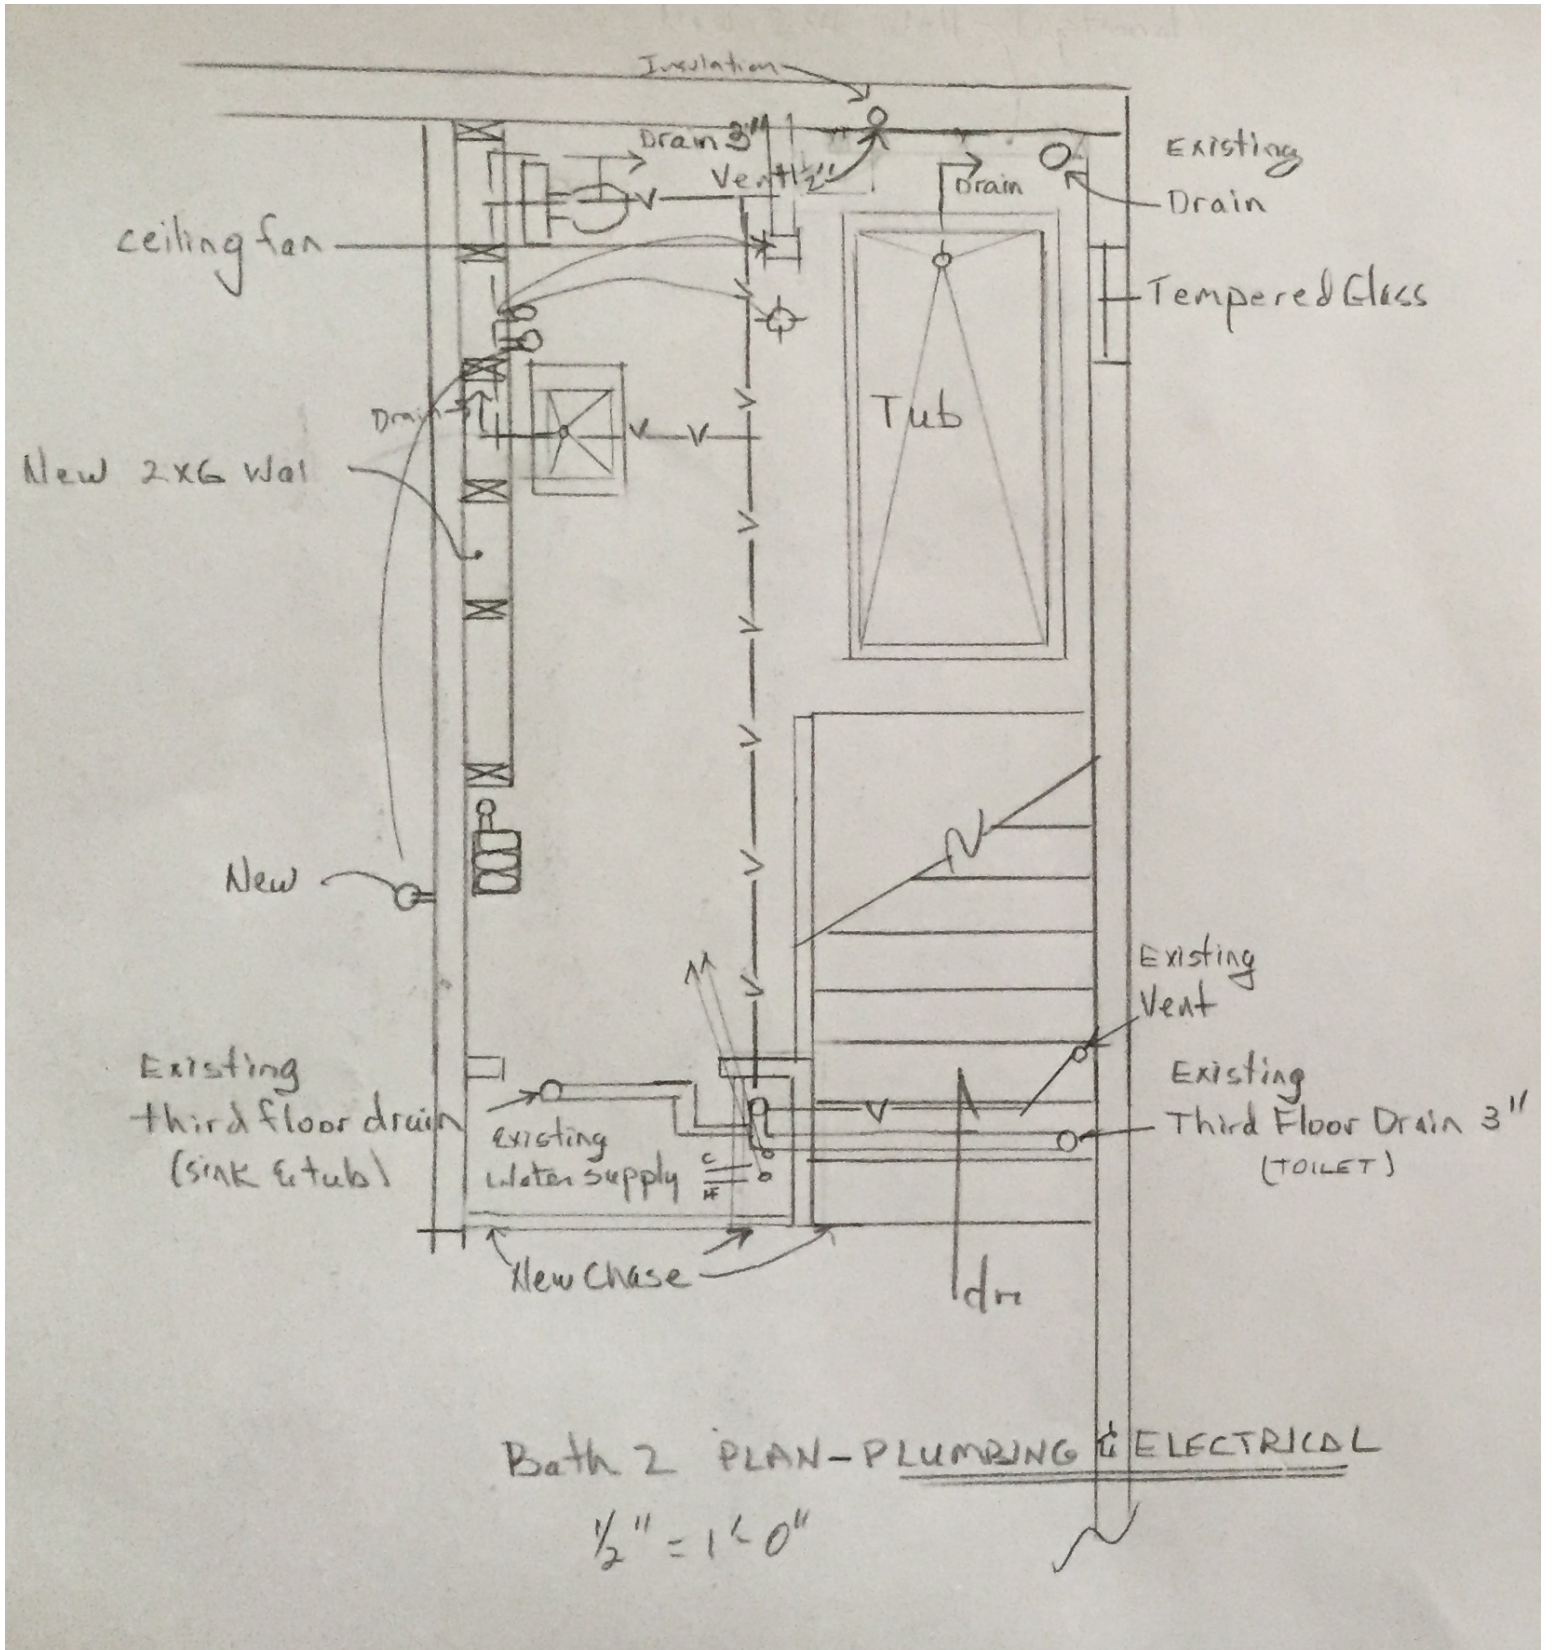 Insulation
Drain 3"
Vent 1½"
Drain
Existing
Drain
ceiling fan
Tempered Glass
Tub
Drain
New 2x6 Wal
New
V
V
V
V
V
V
V
V
V
V
V
V
Existing
Vent
Existing
third floor drain
(sink & tub)
Existing
Water supply
C
H
Existing
Third Floor Drain 3"
(TOILET)
New Chase
dn
Bath 2 PLAN-PLUMBING & ELECTRICAL
½" = 1'-0"